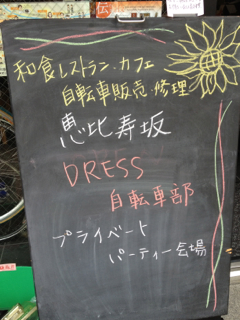 和食レストラン・カフェ
自転車販売・修理
恵比寿坂
DRESS
自転車部
プライベート
パーティー会場